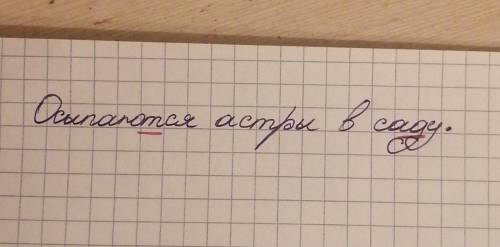 Осыпаются астры в саду.